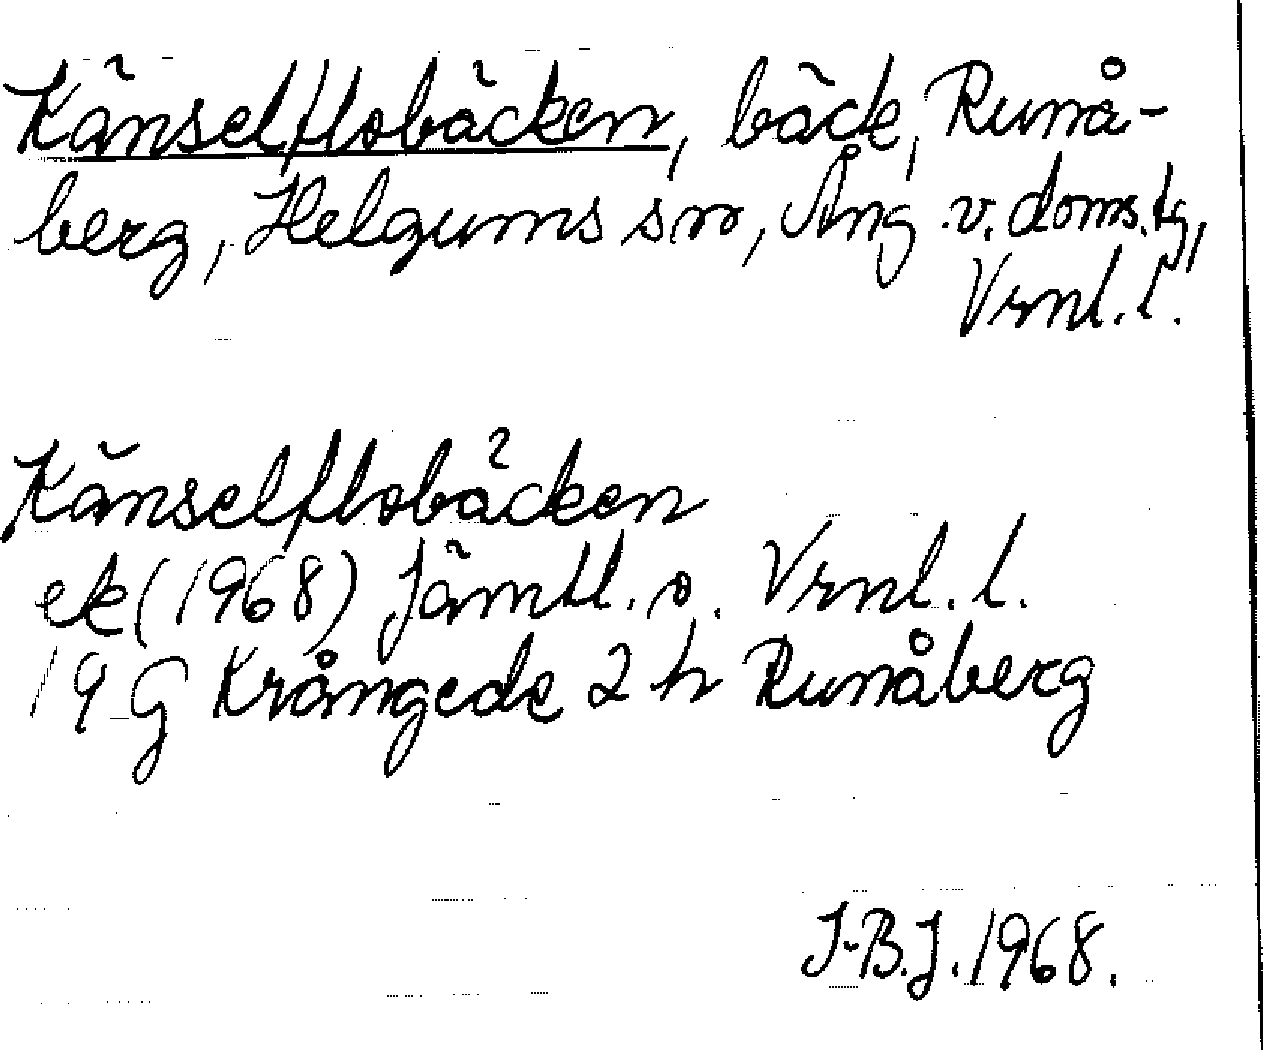 Känselflobäcken, bäck, Runå-
berg, Helgums sn, Ång. v. doms.tg,
Vrnl. l.
Känselflobäcken
ek (1968) Jämtl. o. Vrnl. l.
19 G Krångede 2 h Runåberg
I-B.J. 1968.